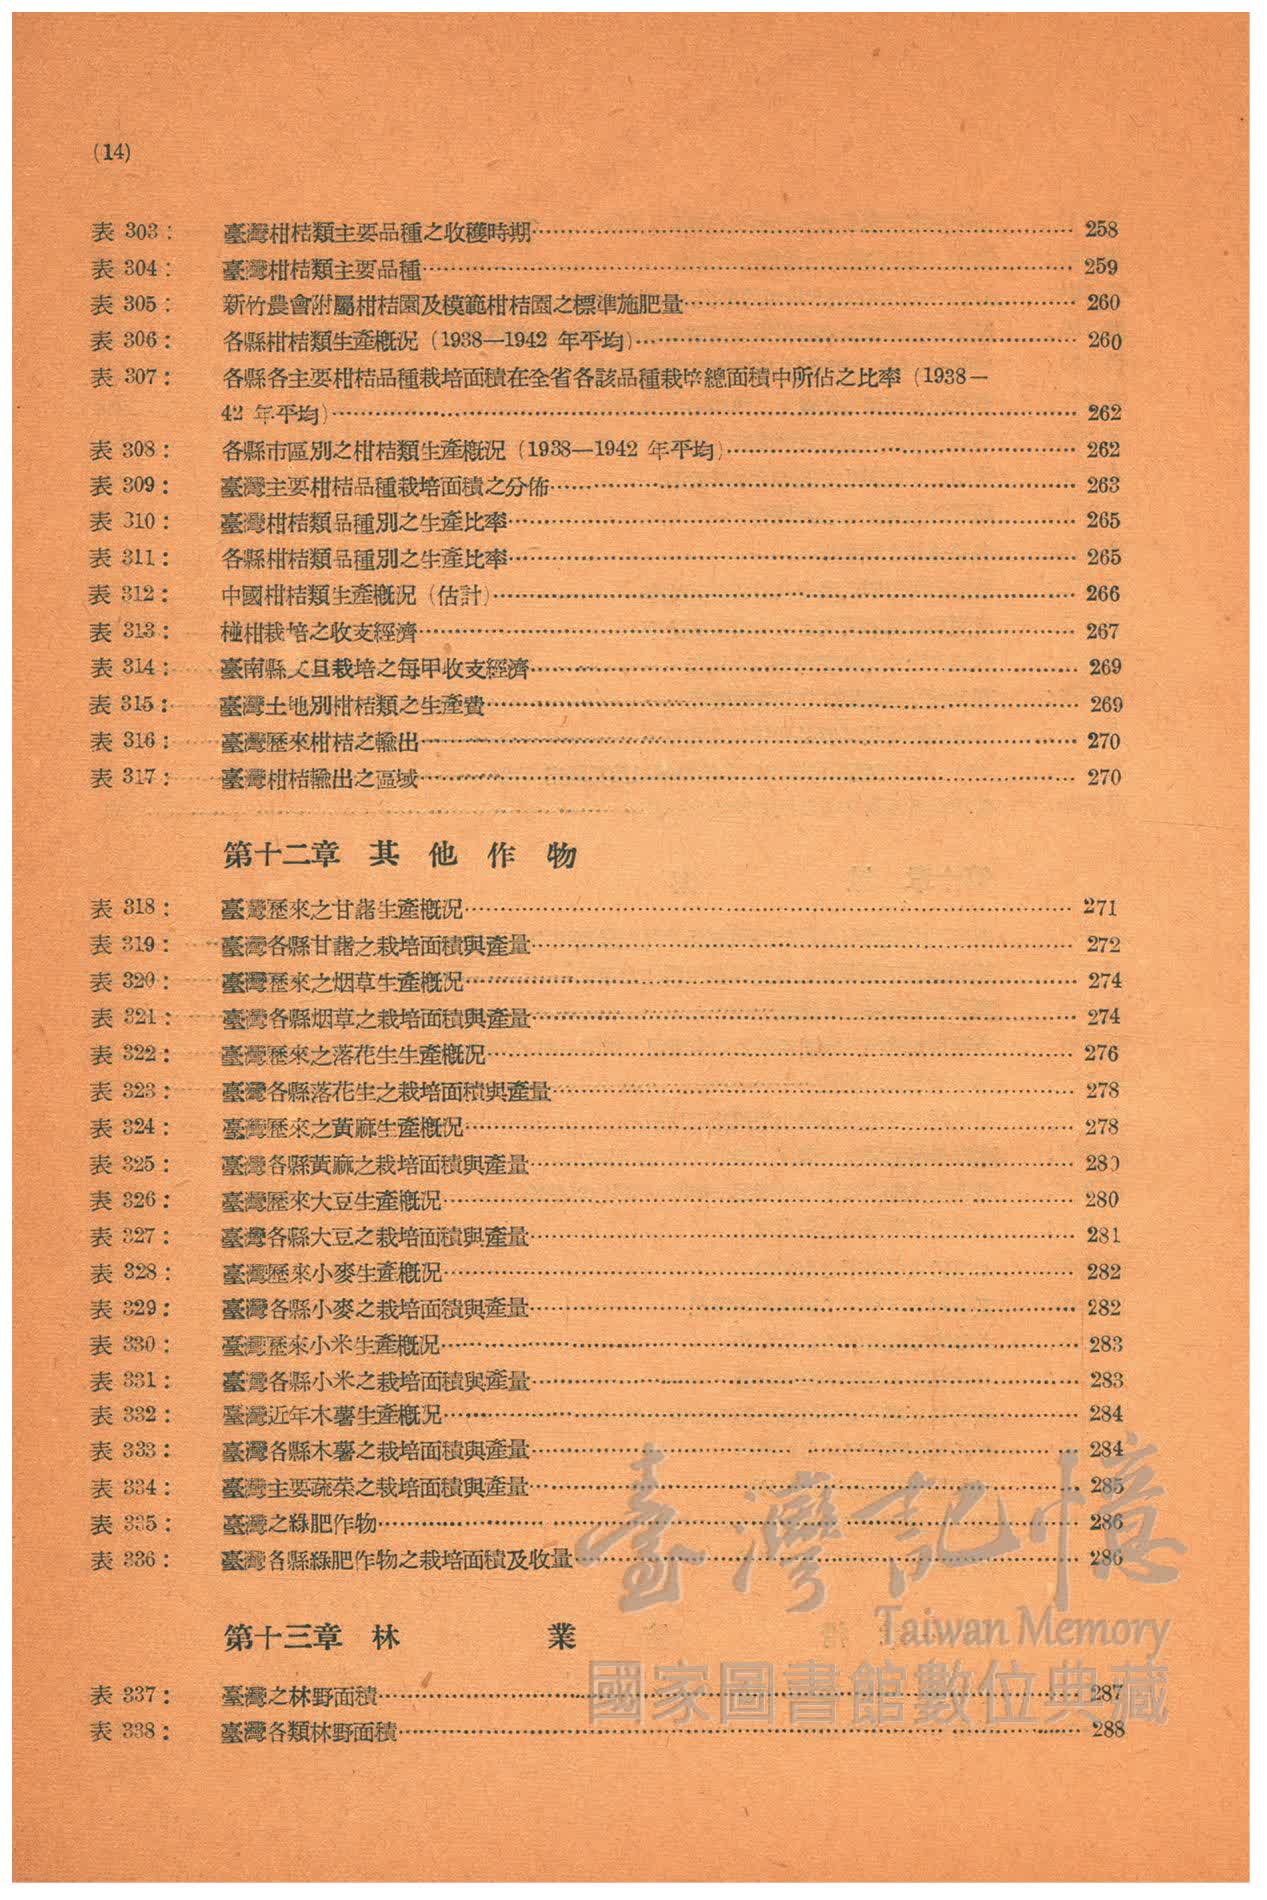 (14)
表 303： 臺灣柑桔類主要品種之收穫時期 258
表 304： 臺灣柑桔類主要品種 259
表 305： 新竹農會附屬柑桔園及模範柑桔園之標準施肥量 260
表 306： 各縣柑桔類生產概況（1938—1942 年平均） 260
表 307： 各縣各主要柑桔品種栽培面積在全省各該品種栽培總面積中所佔之比率（1938—
42 年平均） 262
表 308： 各縣市區別之柑桔類生產概況（1938—1942 年平均） 262
表 309： 臺灣主要柑桔品種栽培面積之分佈 263
表 310： 臺灣柑桔類品種別之生產比率 265
表 311： 各縣柑桔類品種別之生產比率 265
表 312： 中國柑桔類生產概況（估計） 266
表 313： 椪柑栽培之收支經濟 267
表 314： 臺南縣文旦栽培之每甲收支經濟 269
表 315： 臺灣土地別柑桔類之生產費 269
表 316： 臺灣歷來柑桔之輸出 270
表 317： 臺灣柑桔輸出之區域 270
第十二章 其他作物
表 318： 臺灣歷來之甘藷生產概況 271
表 319： 臺灣各縣甘藷之栽培面積與產量 272
表 320： 臺灣歷來之烟草生產概況 274
表 321： 臺灣各縣烟草之栽培面積與產量 274
表 322： 臺灣歷來之落花生生產概況 276
表 323： 臺灣各縣落花生之栽培面積與產量 278
表 324： 臺灣歷來之黃麻生產概況 278
表 325： 臺灣各縣黃麻之栽培面積與產量 280
表 326： 臺灣歷來大豆生產概況 280
表 327： 臺灣各縣大豆之栽培面積與產量 281
表 328： 臺灣歷來小麥生產概況 282
表 329： 臺灣各縣小麥之栽培面積與產量 282
表 330： 臺灣歷來小米生產概況 283
表 331： 臺灣各縣小米之栽培面積與產量 283
表 332： 臺灣近年木薯生產概況 284
表 333： 臺灣各縣木薯之栽培面積與產量 284
表 334： 臺灣主要蔬菜之栽培面積與產量 285
表 335： 臺灣之綠肥作物 286
表 336： 臺灣各縣綠肥作物之栽培面積及收量 286
第十三章 林業
表 337： 臺灣之林野面積 287
表 338： 臺灣各類林野面積 288
臺灣記憶
Taiwan Memory
國家圖書館數位典藏